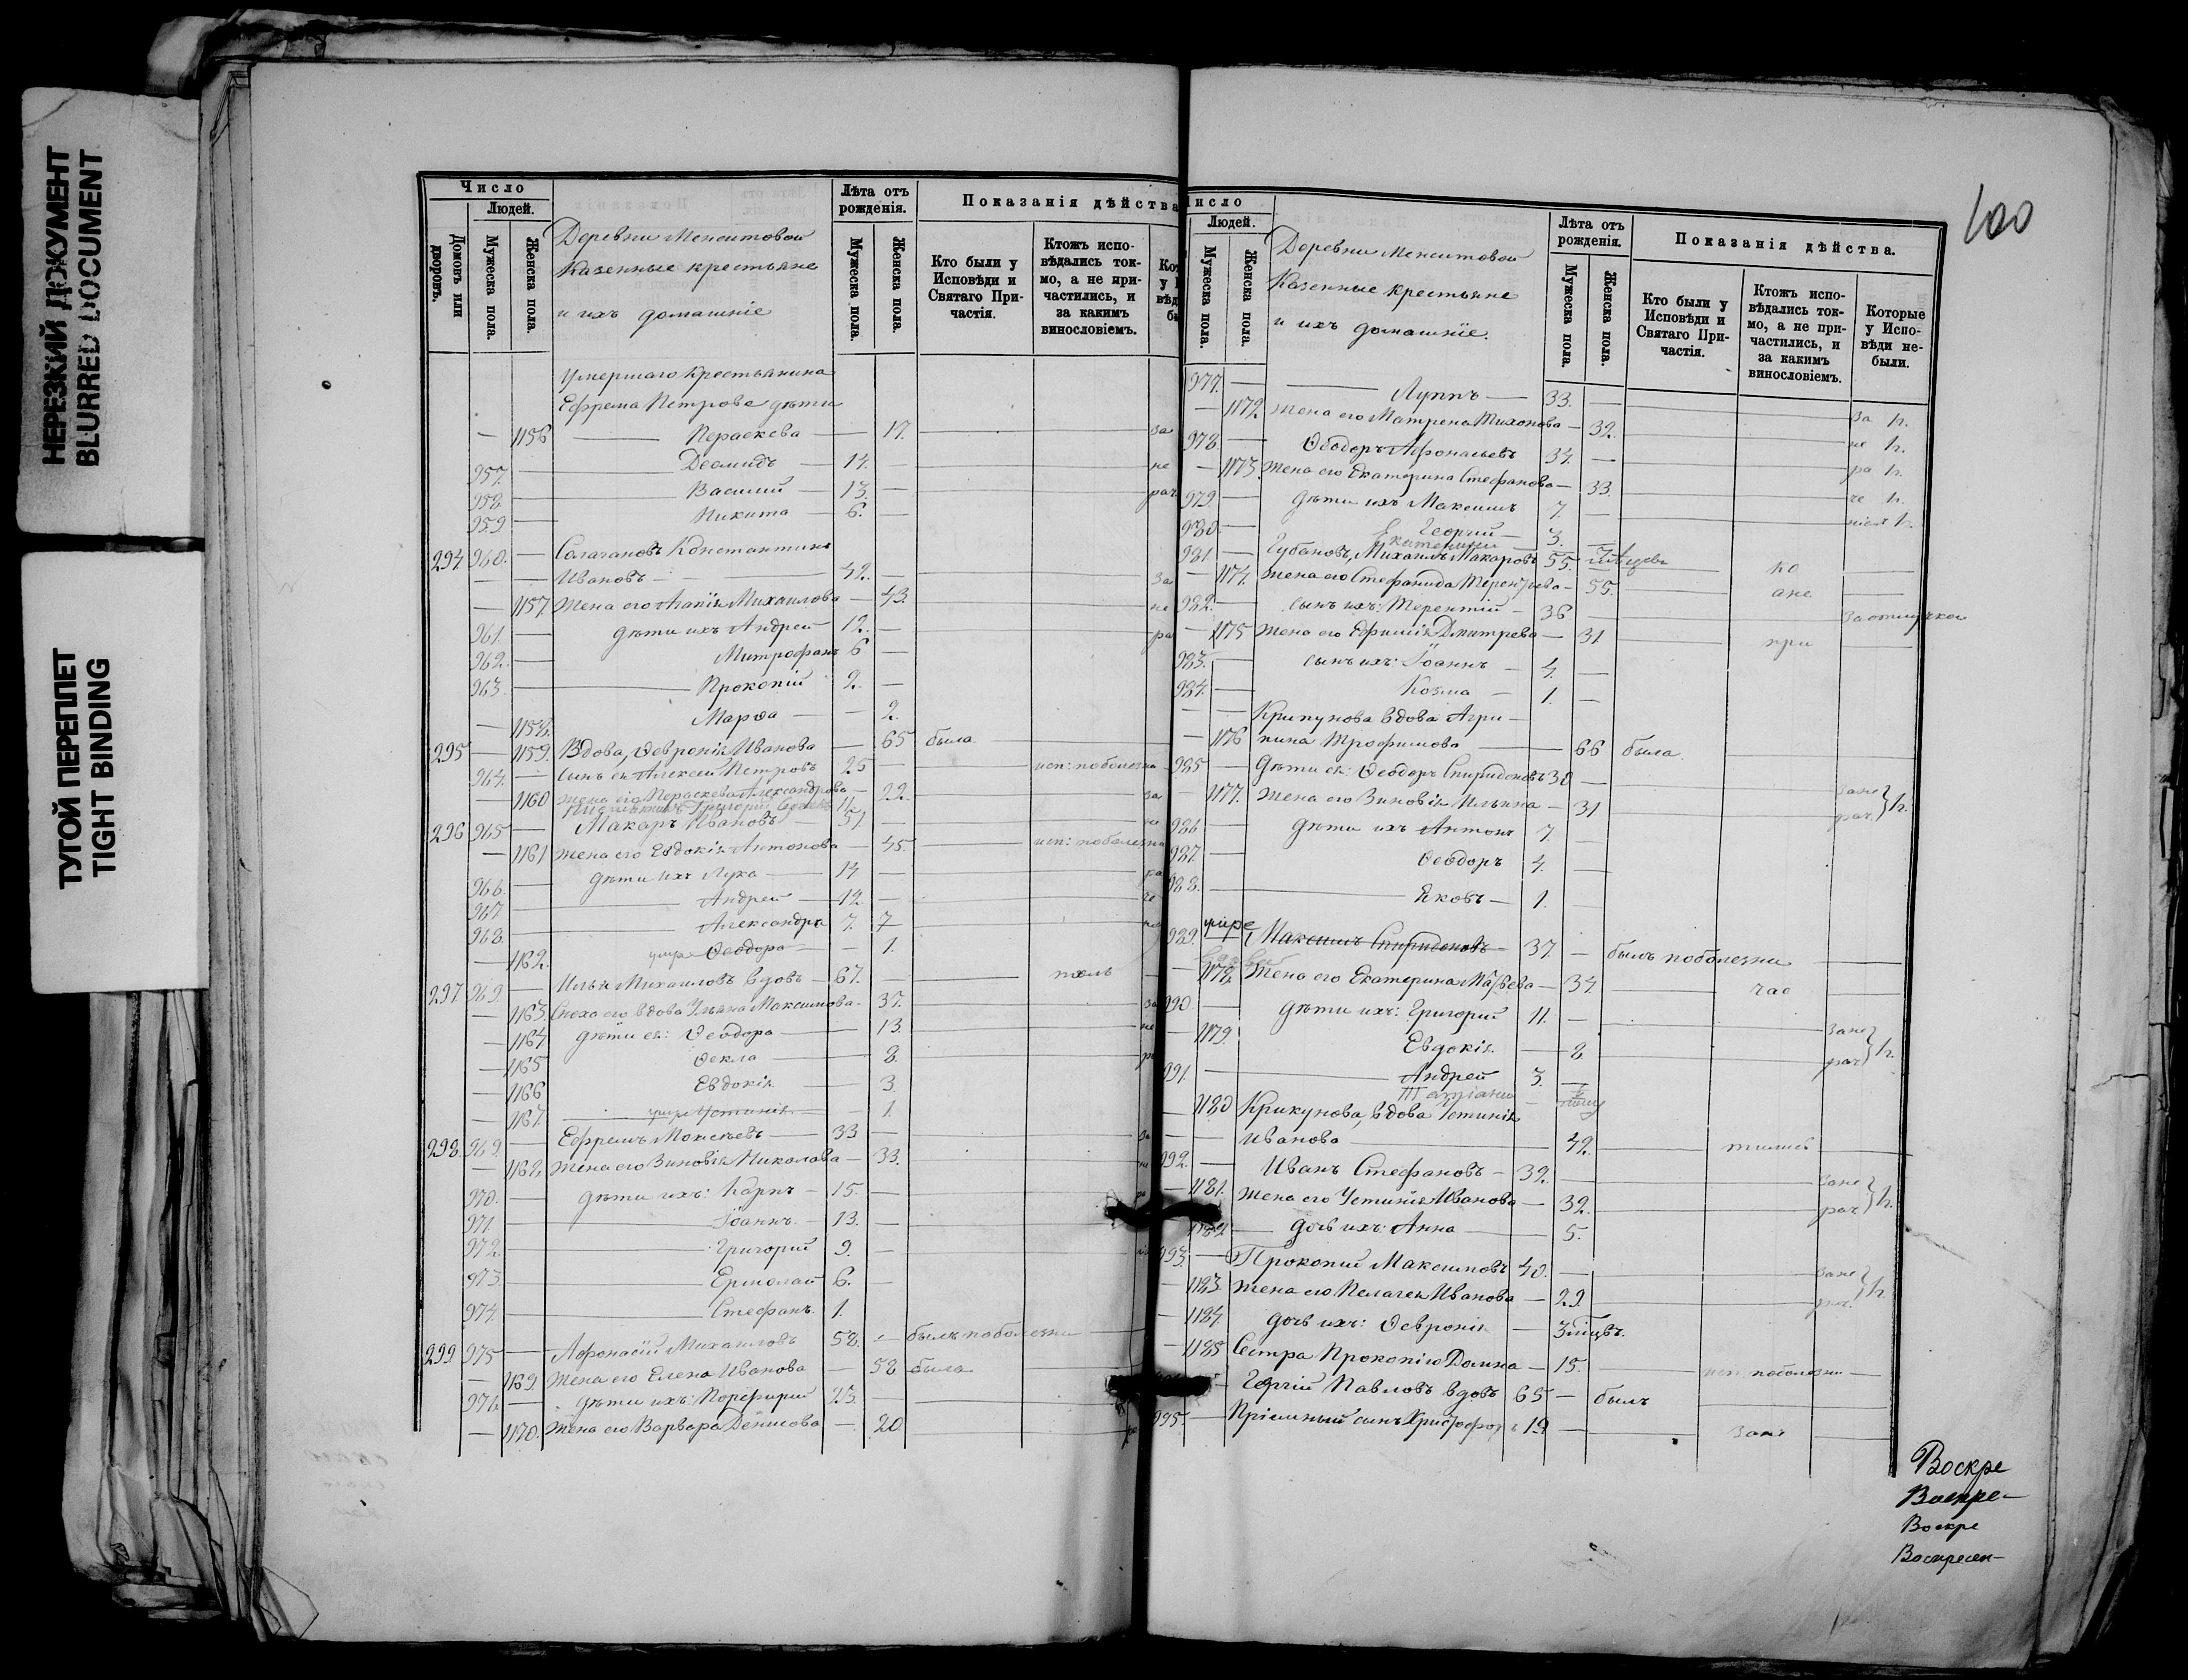 НЕРЕЗКИЙ ДОКУМЕНТ
BLURRED DOCUMENT
ТУГОЙ ПЕРЕПЛЕТ
TIGHT BINDING
Число
Людей.
Домовъ или дворовъ.
Мужеска пола.
Женска пола.
Деревни Менситовой
Казенные крестьяне
и ихъ домашніе
Лѣта отъ рожденія.
Мужеска пола.
Женска пола.
Показанія дѣйства
Кто были у Исповѣди и Святаго Причастія.
Ктожъ исповѣдались токмо, а не причастились, и за какимъ винословіемъ.
Умершаго крестьянина
Ефрема Петрова дѣти
— 1156 — Параскева — 17. за
957. — Диомидъ — 14. — не
958. — Василій — 13. — рач
959 — Никита — 6. —
294 960. — Константинъ
— — Ивановъ — 42. — за
— 1157 Жена его Агапія Михаилова — 43. не
961. — дѣти ихъ Андрей — 12. — ра
962. — Митрофанъ 6 —
963. — Прокопій 2. —
— 1158. Марѳа — — 2.
295 — 1159. Вдова, Ѳевронія Иванова — 65 была
964. — сынъ ея Алексей Петровъ 25 — исп: по болезни
— 1160 жена его Параскева Александрова — 22. за
296 965 — Макаръ Ивановъ 51. — не
— 1161 жена его Евдокія Антонова — 45. исп: по болезни
966. — дѣти ихъ Лука — 14 — ра
967. — Андрей — 12. — че
968. — Александръ 7. 7
— 1162. умре Ѳеодора — — 1.
297 969. — Илья Михаиловъ вдовъ — 67. —
— 1163. Сноха его вдова Ульяна Максимова — 37. за
— 1164 дѣти ея: Ѳеодора — 13. не
— 1165 Ѳекла — 8. ра
— 1166 Евдокія — 3.
— 1167. умре Устинія — — 1.
298. 969. — Ефремъ Моисѣевъ — 33 — за
— 1168. жена его Зиновія Николаева — 33. не
970. — дѣти ихъ: Карпъ — 15. — ра
971 — Іоаннъ — 13. —
972. — Григорій 9. —
973. — Ермолай 6. —
974. — Стефанъ. 1.
299 975 — Афонасій Михаиловъ 58. — былъ по болезни
— 1169. жена его Елена Иванова — 58 была
976. — дѣти ихъ: Порфирій 23. —
— 1170. Жена его Варвара Денисова — 20
100
Число
Людей.
Мужеска пола.
Женска пола.
Деревни Менситовой
Казенные крестьяне
и ихъ домашніе.
Лѣта отъ рожденія.
Мужеска пола.
Женска пола.
Показанія дѣйства.
Кто были у Исповѣди и Святаго Причастія.
Ктожъ исповѣдались токмо, а не причастились, и за какимъ винословіемъ.
Которые у Исповѣди небыли.
977. — Луппъ — 33. — за
— 1172. жена его Матрена Тихонова — 32. не
978. — Ѳеодоръ Афонасьевъ 34. — ра
— 1173. Жена его Екатерина Стефанова — 33. че
979. — дѣти ихъ Максимъ 7. —
980. — Георгій — 3. —
981. — Губановъ, Михаилъ Макаровъ 55. —
— 1174. жена его Стефанида Терентьева — 55.
982. — сынъ ихъ: Терентій — 36 — за отлучкой
— 1175 жена его Ефимія Дмитрева — 31
983. — сынъ ихъ: Іоаннъ — 4. —
984. — Козма — 1. —
— — Крикунова вдова Агри—
— 1176 пина Трофимова — 66 была
985 — дѣти ея: Ѳеодоръ Спиридоновъ 30 — за не
— 1177. жена его Зиновія Ильина — 31 рач
986 — дѣти ихъ Антонъ 7. —
987. — Ѳеодоръ 4. —
988. — Яковъ — 1. —
989. умре Максимъ Спиридоновъ — 37 — былъ по болезни
— 1178. Жена его Екатерина — 34.
990 — дѣти ихъ: Григорій 11. — за не
— 1179 Евдокія — 8. рач
991. — Андрей 3. —
— 1180 Крикунова, вдова Устинія
— — Иванова — 42.
992. — Иванъ Стефановъ — 32. — за не
— 1181. жена его Устинія Иванова — 32. рач
1182 — дочь ихъ: Анна — 5.
993. — Прокопій Максимовъ 40. — за не
— 1183. жена его Пелагея Иванова — 29. рач.
— 1184. дочь ихъ: Ѳевронія — 3 мцвъ.
— 1185 Сестра Прокопію Домна — 15. исп по болезни
Георгій Павловъ вдовъ 65 — былъ
995. — Пріемный сынъ Христофоръ 19 —
Воскре
Воскре—
Воскре
Воскресен—